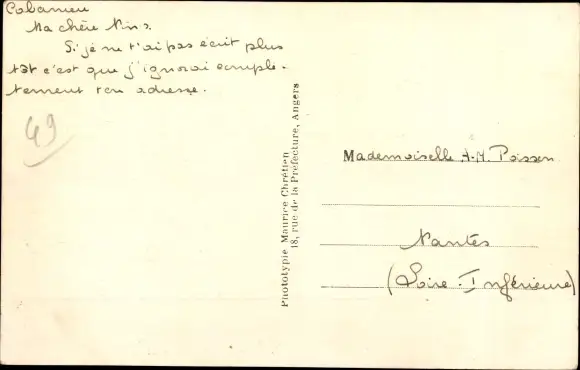 Ma chère Nin
Si je ne t'ai pas écrit plus
tôt c'est que j'ignorai complè-
tement ton adresse.
49
Phototypie Maurice Chrétien
18, rue de la Préfecture, Angers
Mademoiselle A.M. Poisson
Nantes
(Loire-Inférieure)